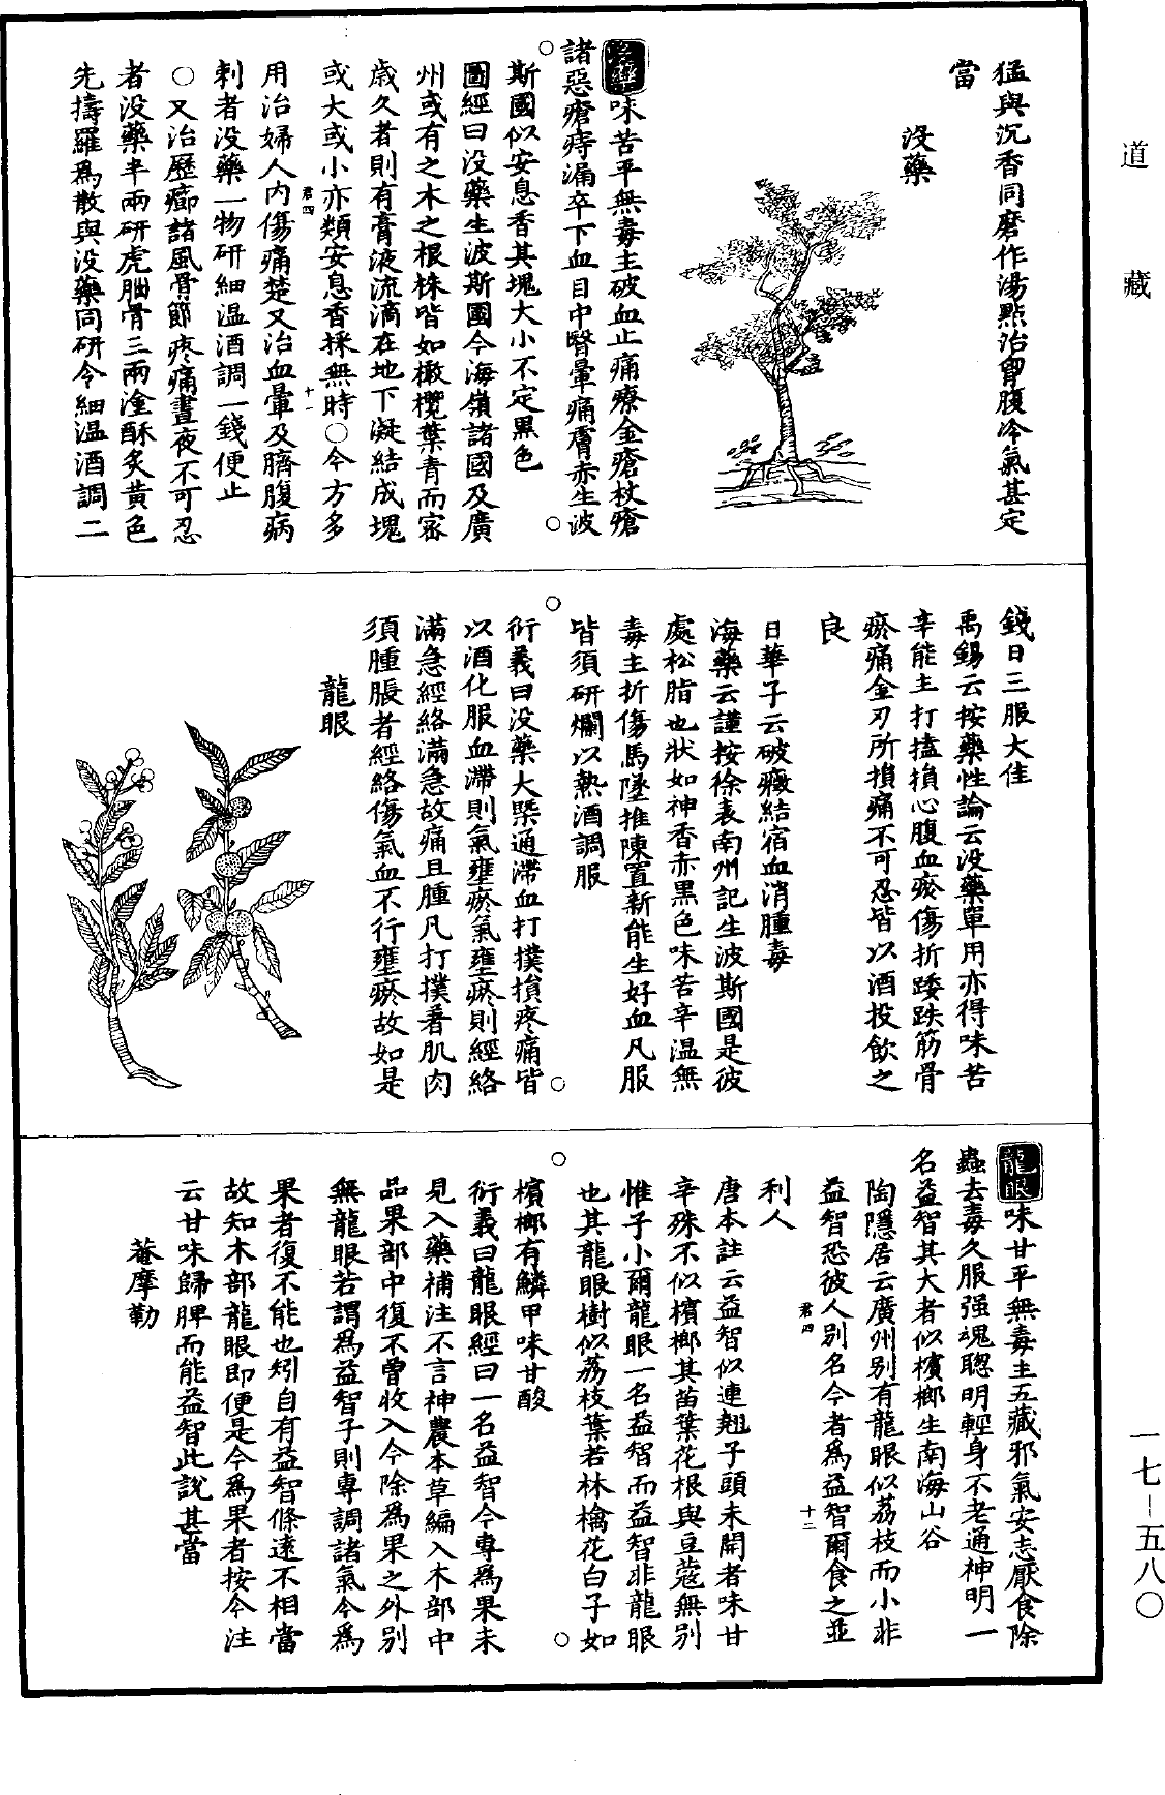 道藏
猛與沉香同磨作湯點治胷腹冷氣甚定
當
没藥
味苦平無毒主破血止痛療金瘡杖瘡
諸惡瘡痔漏卒下血目中瞖暈痛膚赤生波
斯國似安息香其塊大小不定黒色
圖經曰没藥生波斯國今海嶺諸國及廣
州或有之木之根株皆如橄欖葉青而宻
歳久者則有膏液流滴在地下凝結成塊
或大或小亦類安息香採無時○今方多
君四
十一
用治婦人内傷痛楚又治血暈及臍腹㽲
刺者没藥一物研細温酒調一錢便止
○又治歷癤諸風骨節疼痛晝夜不可忍
者没藥半兩研虎脛骨三兩塗酥炙黄色
先擣羅爲散與没藥同研令細温酒調二
錢日三服大佳
禹錫云按藥性論云没藥單用亦得味苦
辛能主打搕損心腹血瘀傷折踒跌筋骨
瘀痛金刃所損痛不可忍皆以酒投飲之
良
日華子云破癥結宿血消腫毒
海藥云謹按徐表南州記生波斯國是彼
處松脂也狀如神香赤黒色味苦辛温無
毒主折傷馬墜推陳置新能生好血凡服
皆須研爛以熱酒調服
衍義曰没藥大槩通滯血打撲損疼痛皆
以酒化服血滯則氣壅瘀氣壅瘀則經絡
滿急經絡滿急故痛且腫凡打撲着肌肉
須腫脹者經絡傷氣血不行壅瘀故如是
龍眼
龍眼味甘平無毒主五藏邪氣安志厭食除
蟲去毒久服强魂聰明輕身不老通神明一
名益智其大者似檳榔生南海山谷
陶隱居云廣州别有龍眼似荔枝而小非
益智恐彼人别名今者爲益智爾食之並
君四
十二
利人
唐本註云益智似連翹子頭未開者味甘
辛殊不似檳榔其苗葉花根與豆蔻無别
惟子小爾龍眼一名益智而益智非龍眼
也其龍眼樹似荔枝葉若林檎花白子如
檳榔有鱗甲味甘酸
衍義曰龍眼經曰一名益智今專爲果未
見入藥補注不言神農本草編入木部中
品果部中復不曾收入今除爲果之外别
無龍眼若謂爲益智子則專調諸氣今爲
果者復不能也矧自有益智條遠不相當
故知木部龍眼即便是今爲果者按今注
云甘味歸脾而能益智此説甚當
菴摩勒
一七－五八〇